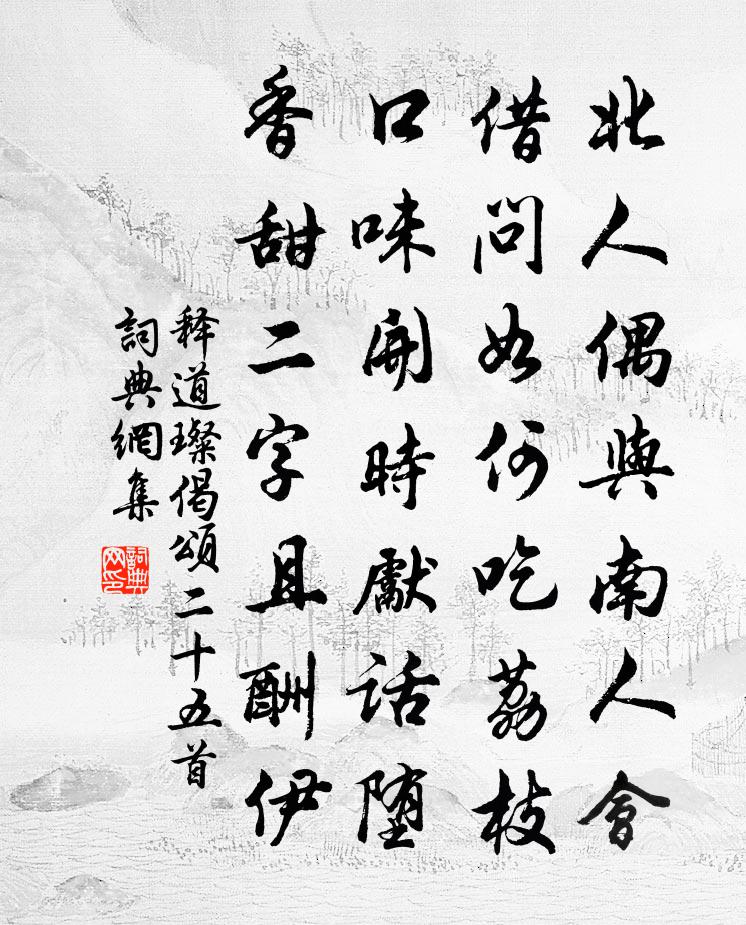 北人偶與南人會
借問如何吃荔枝
口味開時獻話堕
香甜二字且酬伊
释道璨偈頌二十五首
詞典網集
詞典网印